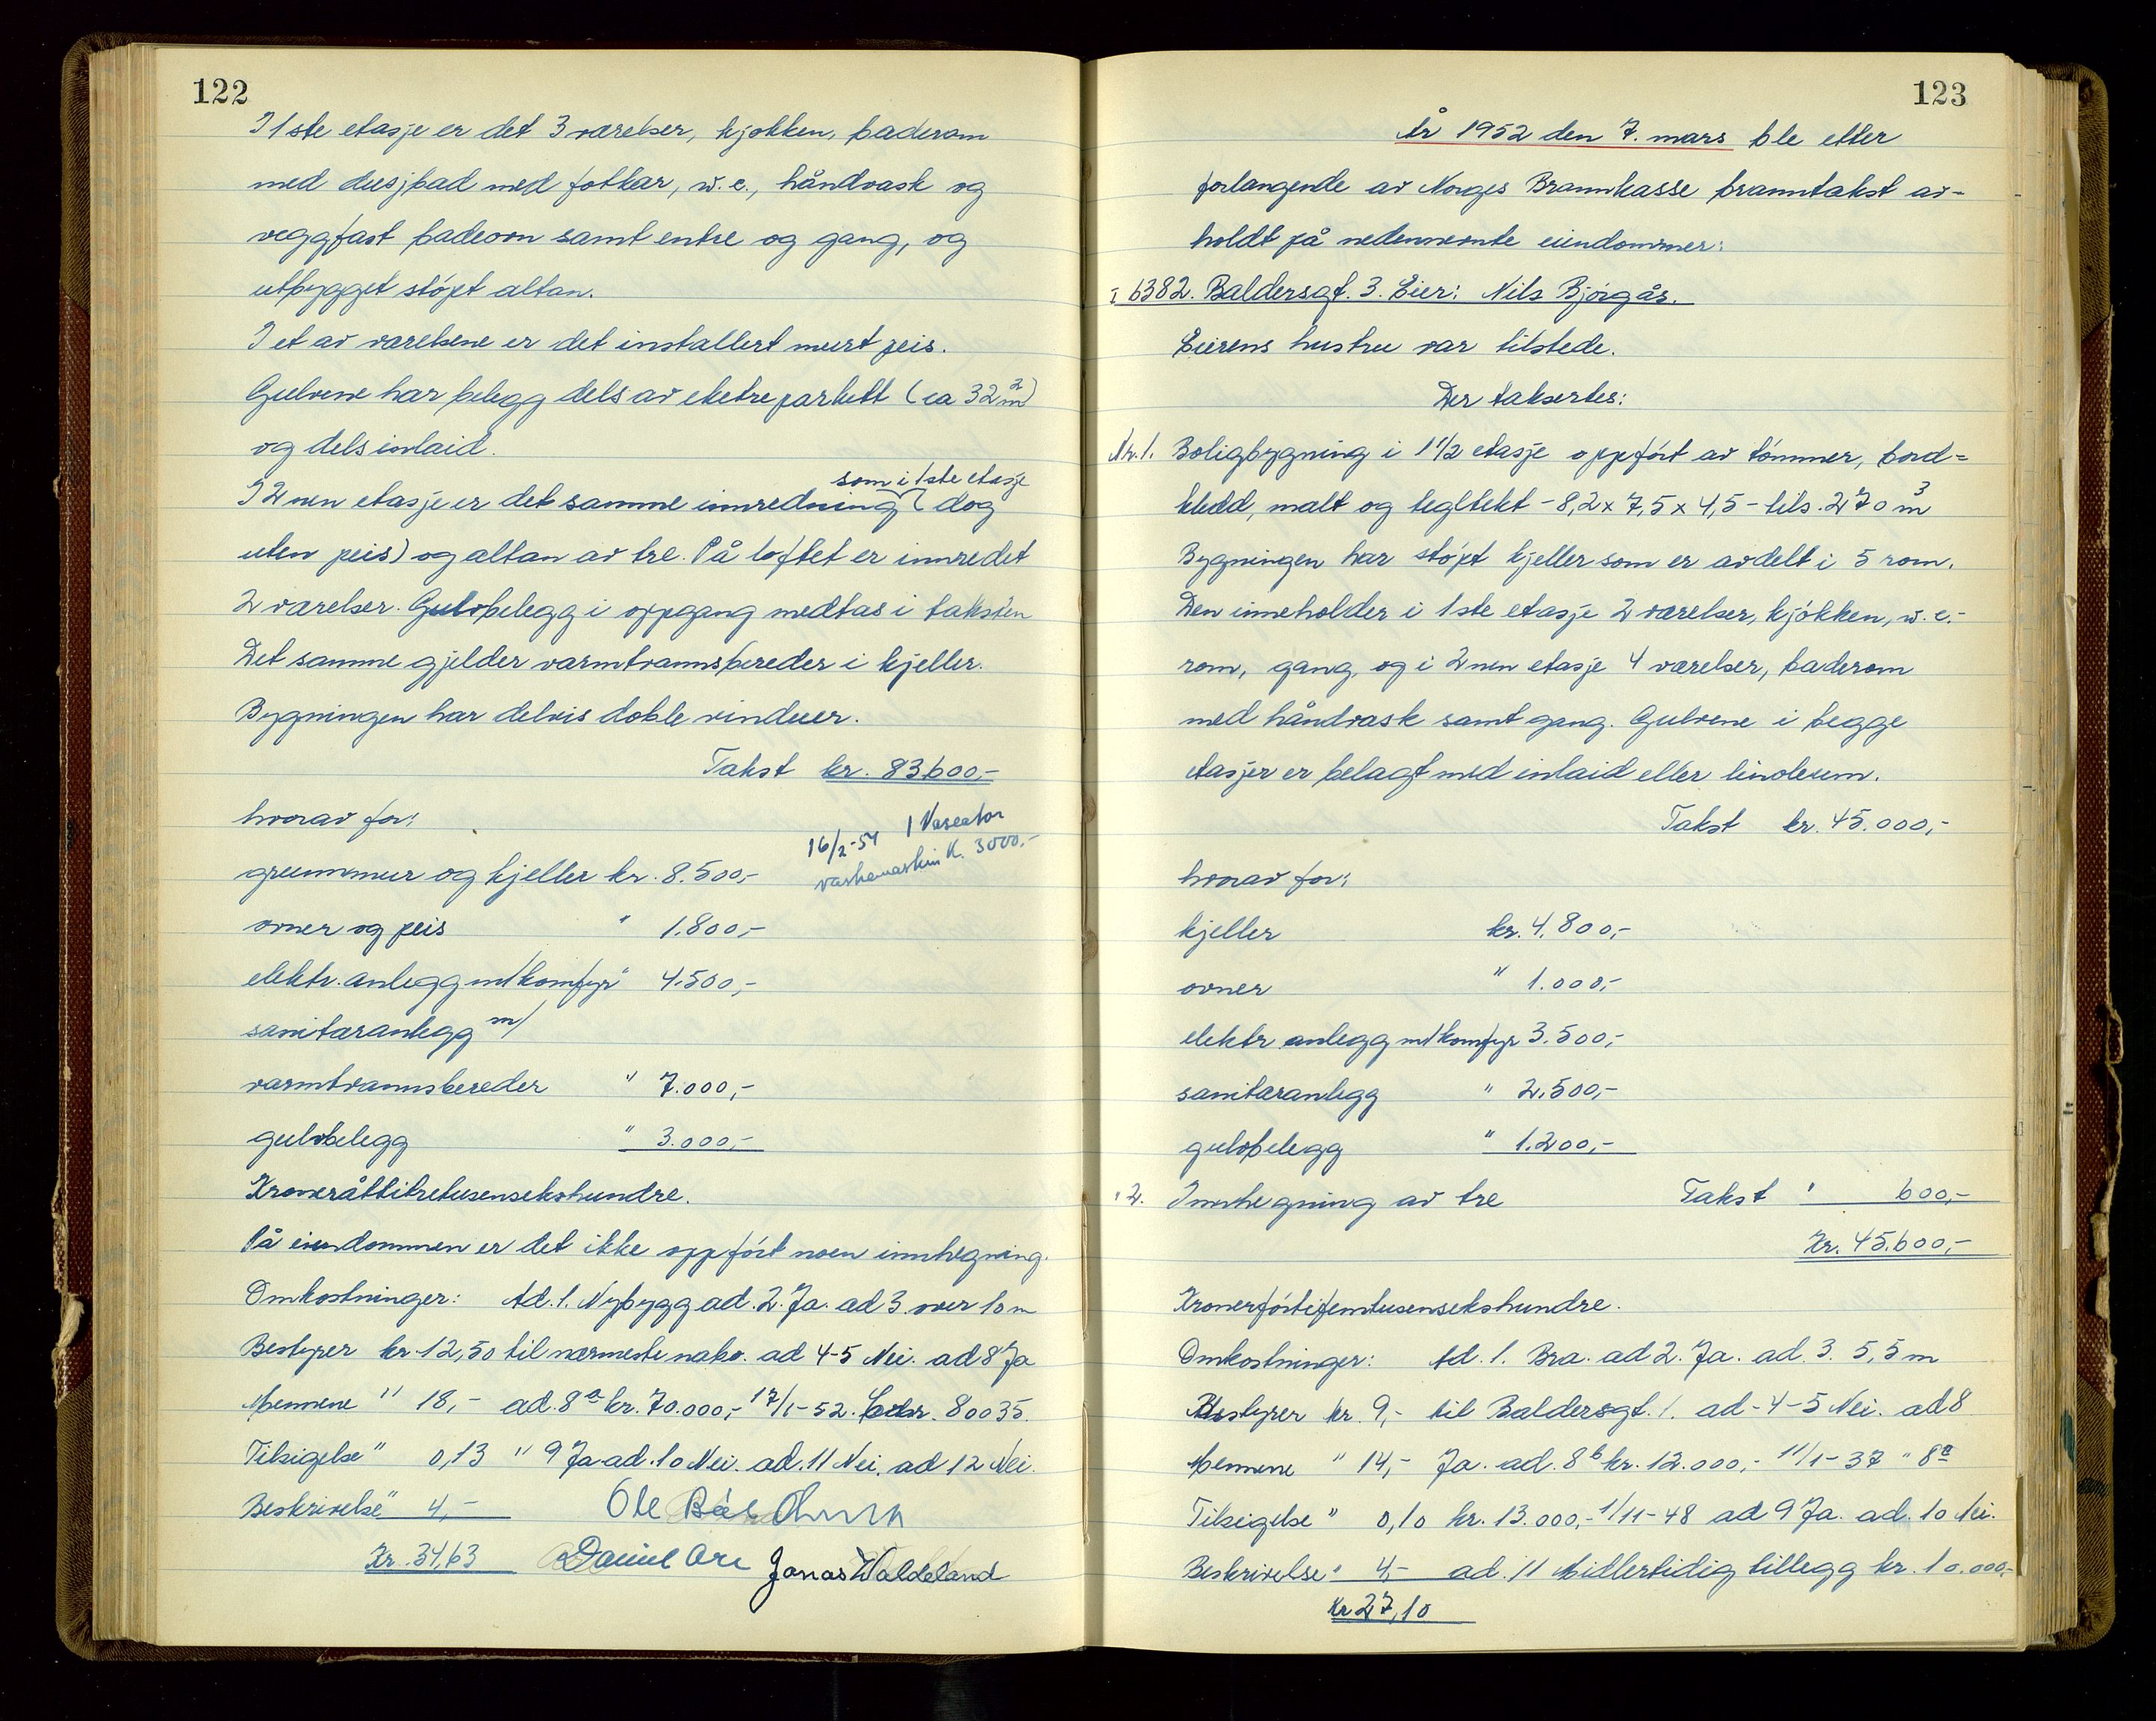 122
I 1ste etasje er det 3 værelser, kjøkken, baderom
med dusjbad med fotkar, w.c., håndvask og
veggfast badeovn samt entre og gang, og
utbygget støpt altan.
I et av værelsene er det installert murt peis.
Gulvene har belegg dels av eketreparkett (ca 32 m²)
og dels inlaid.
som i 1ste etasje
I 2nen etasje er det samme innredning (dog
uten peis) og altan av tre. På loftet er innredet
2 værelser. Gulvbelegg i oppgang medtas i taksten
Det samme gjelder varmtvannsbereder i kjeller.
Bygningen har delvis doble vinduer.
Takst kr. 83.600,-
hvorav for:
16/2-54 1 Vascator
vaskemaskin K. 3000.-
grunnmur og kjeller kr. 8.500,-
ovner og peis " 1.800,-
elektr. anlegg m/komfyr " 4.500,-
sanitæranlegg m/
varmtvannsbereder " 7.000,-
gulvbelegg " 3.000,-
Kroneråttitretusensekshundre.
På eiendommen er det ikke oppført noen innhegning.
Omkostninger: Ad. 1. Nybygg ad. 2. Ja. ad 3. over 10 m
Bestyrer kr. 12,50 til nærmeste nabo. ad 4-5 Nei. ad 8 Ja
Mennene " 18,- ad. 8 a kr. 70.000,- 17/1-52. 80035.
Tilsigelse " 0,13 " 9 Ja ad. 10 Nei. ad. 11 Nei. ad 12 Nei.
Beskrivelse " 4,- Ole
Kr. 34,63 Daniel Jonas Waldeland
123
År 1952 den 7. mars ble etter
forlangende av Norges Brannkasse branntakst av-
holdt på nedennevnte eiendommer:
6382. Baldersgt. 3. Eier: Nils Bjørgås.
Eierens hustru var tilstede.
Der taksertes:
Nr. 1. Boligbygning i 1 1/2 etasje oppført av tømmer, bord=
kledd, malt og tegltekt - 8,2 x 7,5 x 4,5 - tils. 270 m³
Bygningen har støpt kjeller som er avdelt i 5 rom.
Den inneholder i 1ste etasje 2 værelser, kjøkken, w.c.-
rom, gang, og i 2nen etasje 4 værelser, baderom
med håndvask samt gang. Gulvene i begge
etasjer er belagt med inlaid eller linoleum.
Takst kr. 45.000,-
hvorav for:
kjeller kr. 4.800,-
ovner " 1.000,-
elektr anlegg m/komfyr 3.500,-
sanitæranlegg " 2.500,-
gulvbelegg " 1.200,-
" 2. Innhegning av tre Takst " 600,-
Kr. 45.600,-
Kronerførtifemtusensekshundre.
Omkostninger: Ad. 1. Bra. ad 2. Ja. ad. 3. 5,5 m
Bestyrer kr. 9,- til Baldersgt. 1. ad - 4-5 Nei. ad 8
Mennene " 14,- Ja. ad. 8 b kr. 12.000,- 11/1-37 " 8 a
Tilsigelse " 0,10 kr. 13.000,- 1/11-48 ad 9 Ja. ad. 10 Nei.
Beskrivelse " 4,- ad. 11 Midlertidig tillegg kr. 10.000,-
Kr 27,10